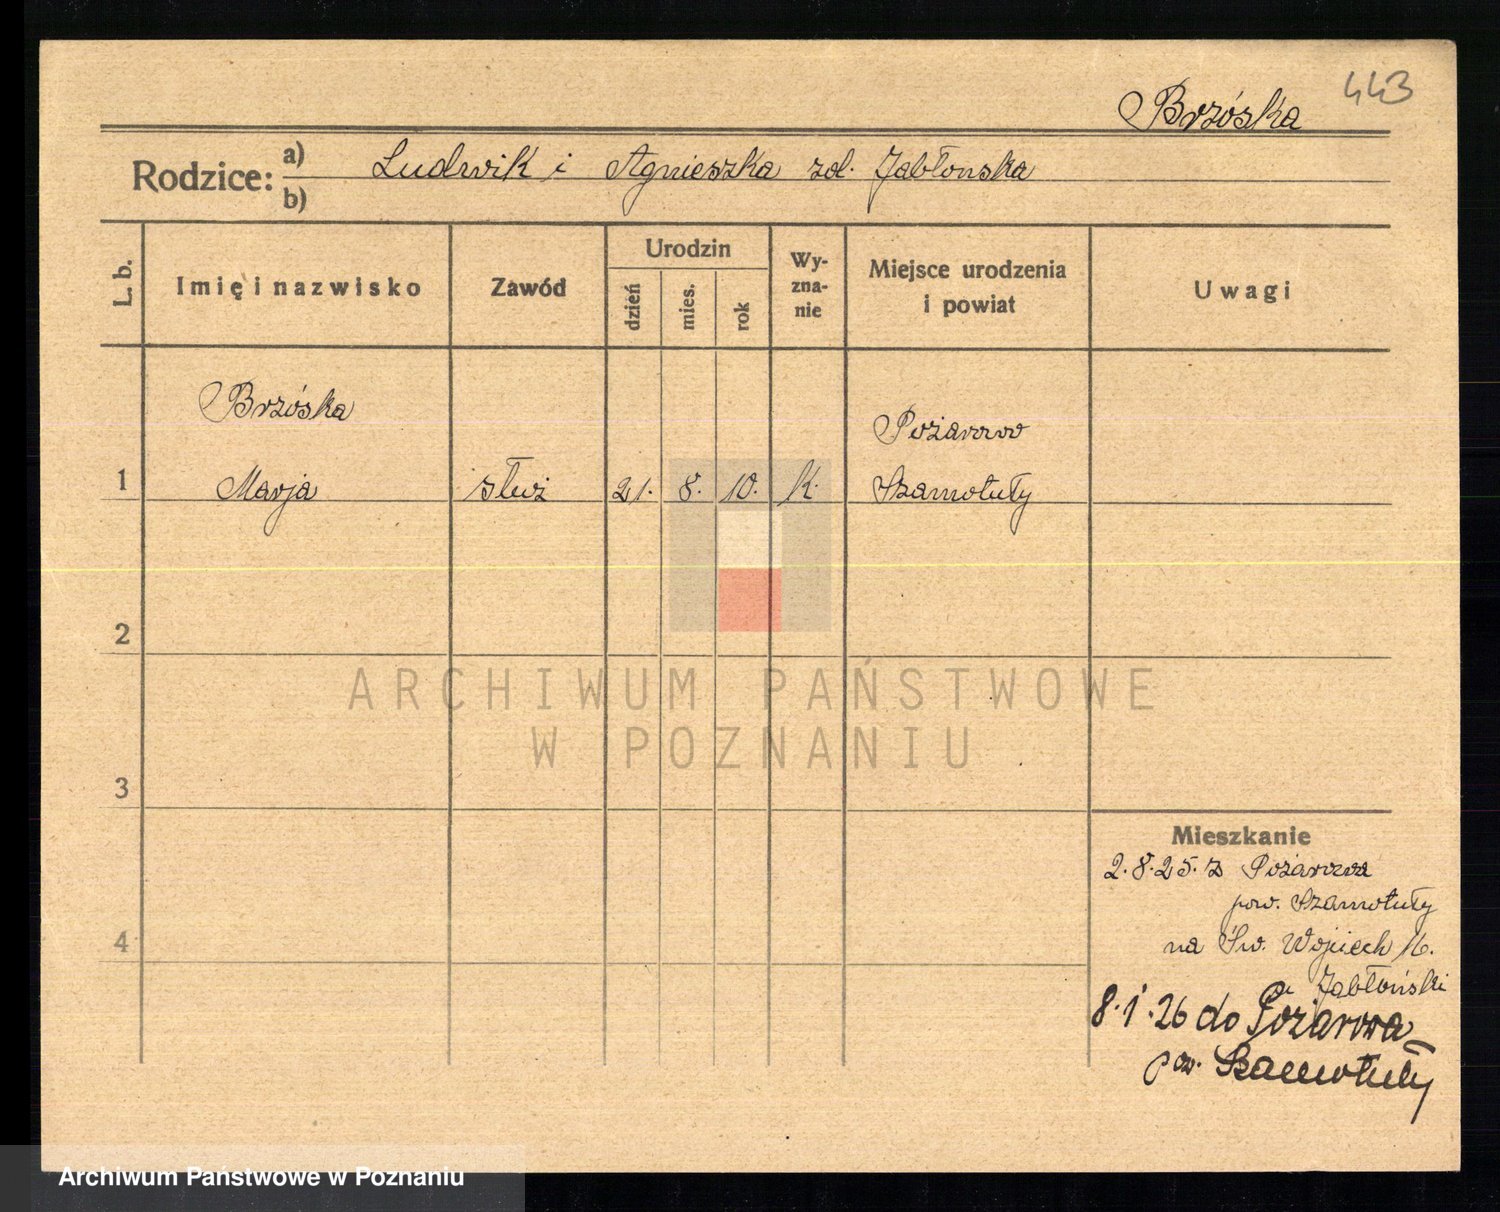 443
Brzóska
Rodzice: a) Ludwik i Agnieszka zd. Jabłonska
b)
L. b. Imię i nazwisko Zawód Urodzin dzień mies. rok Wy-zna-nie Miejsce urodzenia i powiat Uwagi
Brzóska Pożarowo
1 Marja służ 21. 8. 10. k. Szamotuły
2
ARCHIWUM PAŃSTWOWE
W POZNANIU
3
Mieszkanie
2.8.25. z Pożarowa
pow. Szamotuły
4 na Św. Wojciech 16.
u Jabłoński
8.1.26 do Pożarowa
pow. Szamotuły
Archiwum Państwowe w Poznaniu